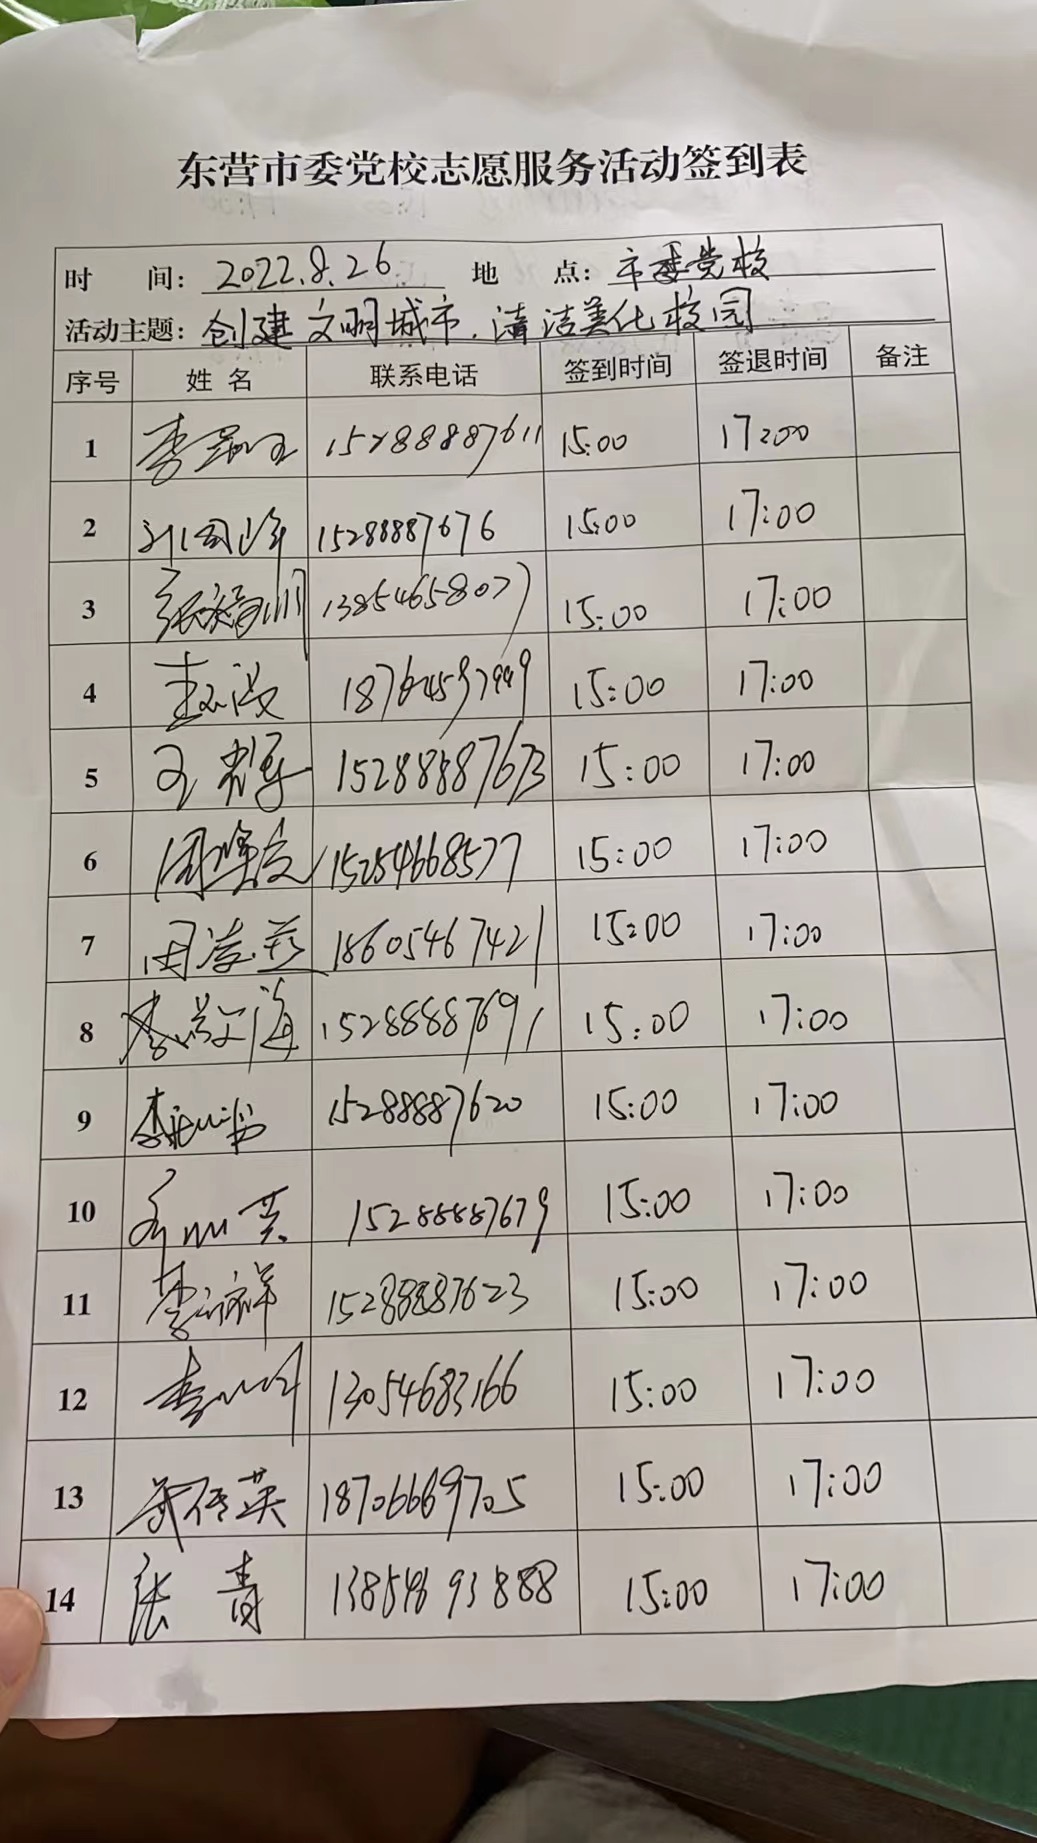 东营市委党校志愿服务活动签到表
时 间: 2022.8.26 地 点: 市委党校
活动主题: 创建文明城市.清洁美化校园
序号 姓名 联系电话 签到时间 签退时间 备注
1 李 15288887611 15:00 17:00
2 15288887676 15:00 17:00
3 13854658077 15:00 17:00
4 15:00 17:00
5 王 15288887673 15:00 17:00
6 周 15254668577 15:00 17:00
7 18605467421 15:00 17:00
8 李 海 15288887691 15:00 17:00
9 李 15288887620 15:00 17:00
10 15288887679 15:00 17:00
11 李 祥 15288887623 15:00 17:00
12 李 13054683166 15:00 17:00
13 英 18706669705 15:00 17:00
14 张青 15:00 17:00